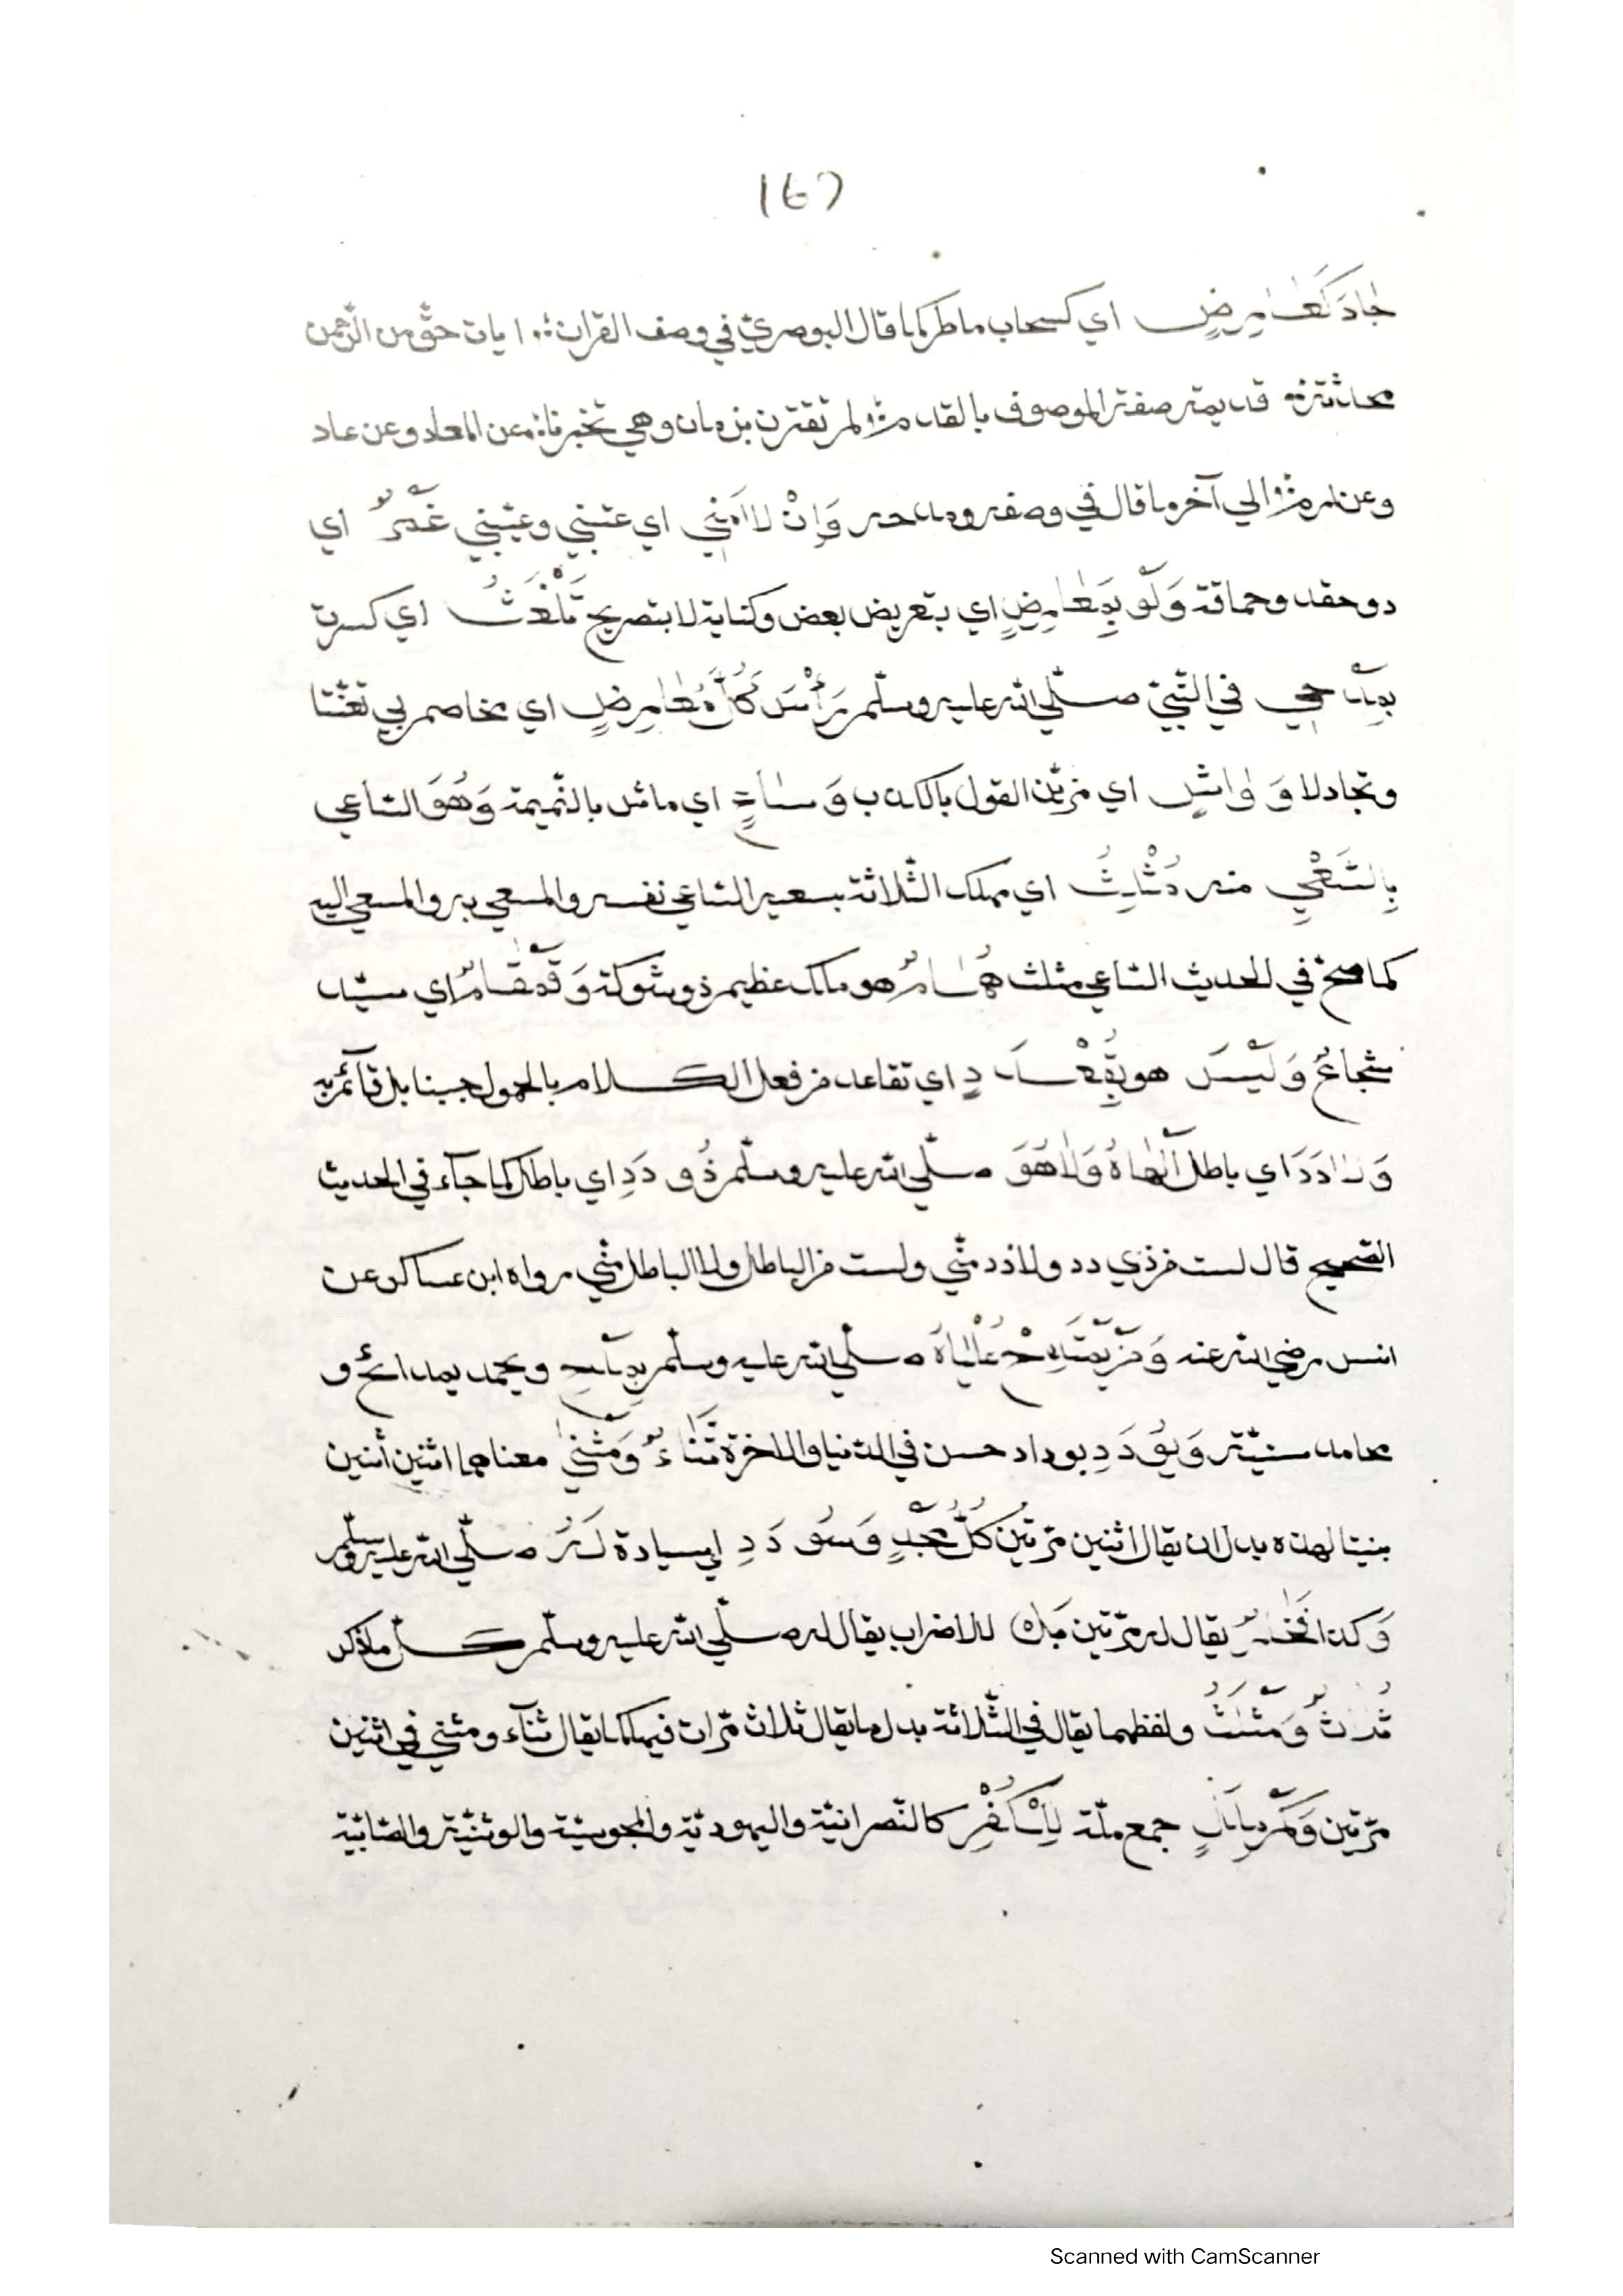 167
جَادَ كَعَارِضٍ اي كسحاب ماطر كما قال البوصريّ في وصف القران؛ ايات حقّ من الرّحمن
محدثة؛ قديمة صفة الموصوف بالقدم؛ لم تقترن بزمان وهي تخبرنا؛ عن المعاد وعن عاد
وعن ارم؛ الي آخر ما قال في وصفه ومدحه وَاِنْ لَامَنِي اي عتبني وعيّبني غَمْرٌ اي
ذو حقد وحماقة وَلَوْ بِمَعَارِضٍ اي بتعريض بعض وكناية لا بتصريح تَلْغَثُ اي كسرت
بِمَدْحِي في النّبيّ صلّي الله عليه وسلّم رَأْسَ كُلِّ مُعَارِضٍ اي مخاصم لي تعنّتا
وتجادلا وَ وَاشٍ اي مزيّن القول بالكذب وَسَاعٍ اي ماش بالنّميمة وَهُوَ السّاعي
بِالسَّعْيِ منه مُثْلِثُ اي مهلك الثّلاثة بسعيه السّاعي نفسه والمسعي به والمسعي اليه
كما صحّ في الحديث السّاعي مثلث هُمَامٌ هو ملك عظيم ذو شوكة وَقَمْقَامٌ اي سيّد
شُجَاعٌ وَلَيْسَ هو بِقُعْدَدٍ اي تقاعد من فعل الكلام بالحمول جبنا بل قآئم به
وَلَا دَدَ اي باطل اَلْهَاهُ وَلَا هُوَ صلّي الله عليه وسلّم ذُو دَدٍ اي باطل كما جآء في الحديث
الصّحيح قال لست من ذي دد ولا دد منّي ولست من الباطل ولا الباطل منّي رواه ابن عساكر عن
انس رضي الله عنه وَمَنْ يَمْتَدِحْ عُلْيَاهُ صلّي الله عليه وسلّم يُمْدَحْ ويحمد بمدائح و
محامد سنيّة وَيُوْدَدِ بوداد حسن في الدّنيا والاخرة ثُنَاءُ وَمَثْنَي معناهما اثنين أثنين
بنيتا لهذه بدل ان يقال اثنين مرّتين كُلُّ مَجْدٍ وَسُوْدَدٍ اي سيادة لَهُ صلّي الله عليه وسلّم
وَكذا فَخَارٌ يقال له مرّتين بَلْ للاضراب يقال له صلّي الله عليه وسلّم كلّ ما ذكر
ثُلَاثُ وَمَثْلَثُ ولفظهما يقال في الثّلاثة بدل ما يقال ثلاث مرّات فيه كما يقال ثنآء ومثني في اثنين
مرّتين وَكَمْ مِلَلٍ جمع ملّة لِلْكُفْرِ كالنّصرانيّة واليهوديّة والمجوسيّة والوثنيّة والصّابيّة
Scanned with CamScanner